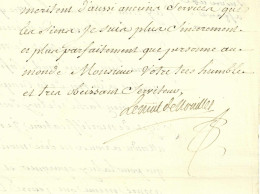 meritent d'aussi anciens Services que
les siens. Je suis plus sincerement
et plus parfaitement que personne au
monde Monsieur Votre tres humble
et tres obeissant Serviteur